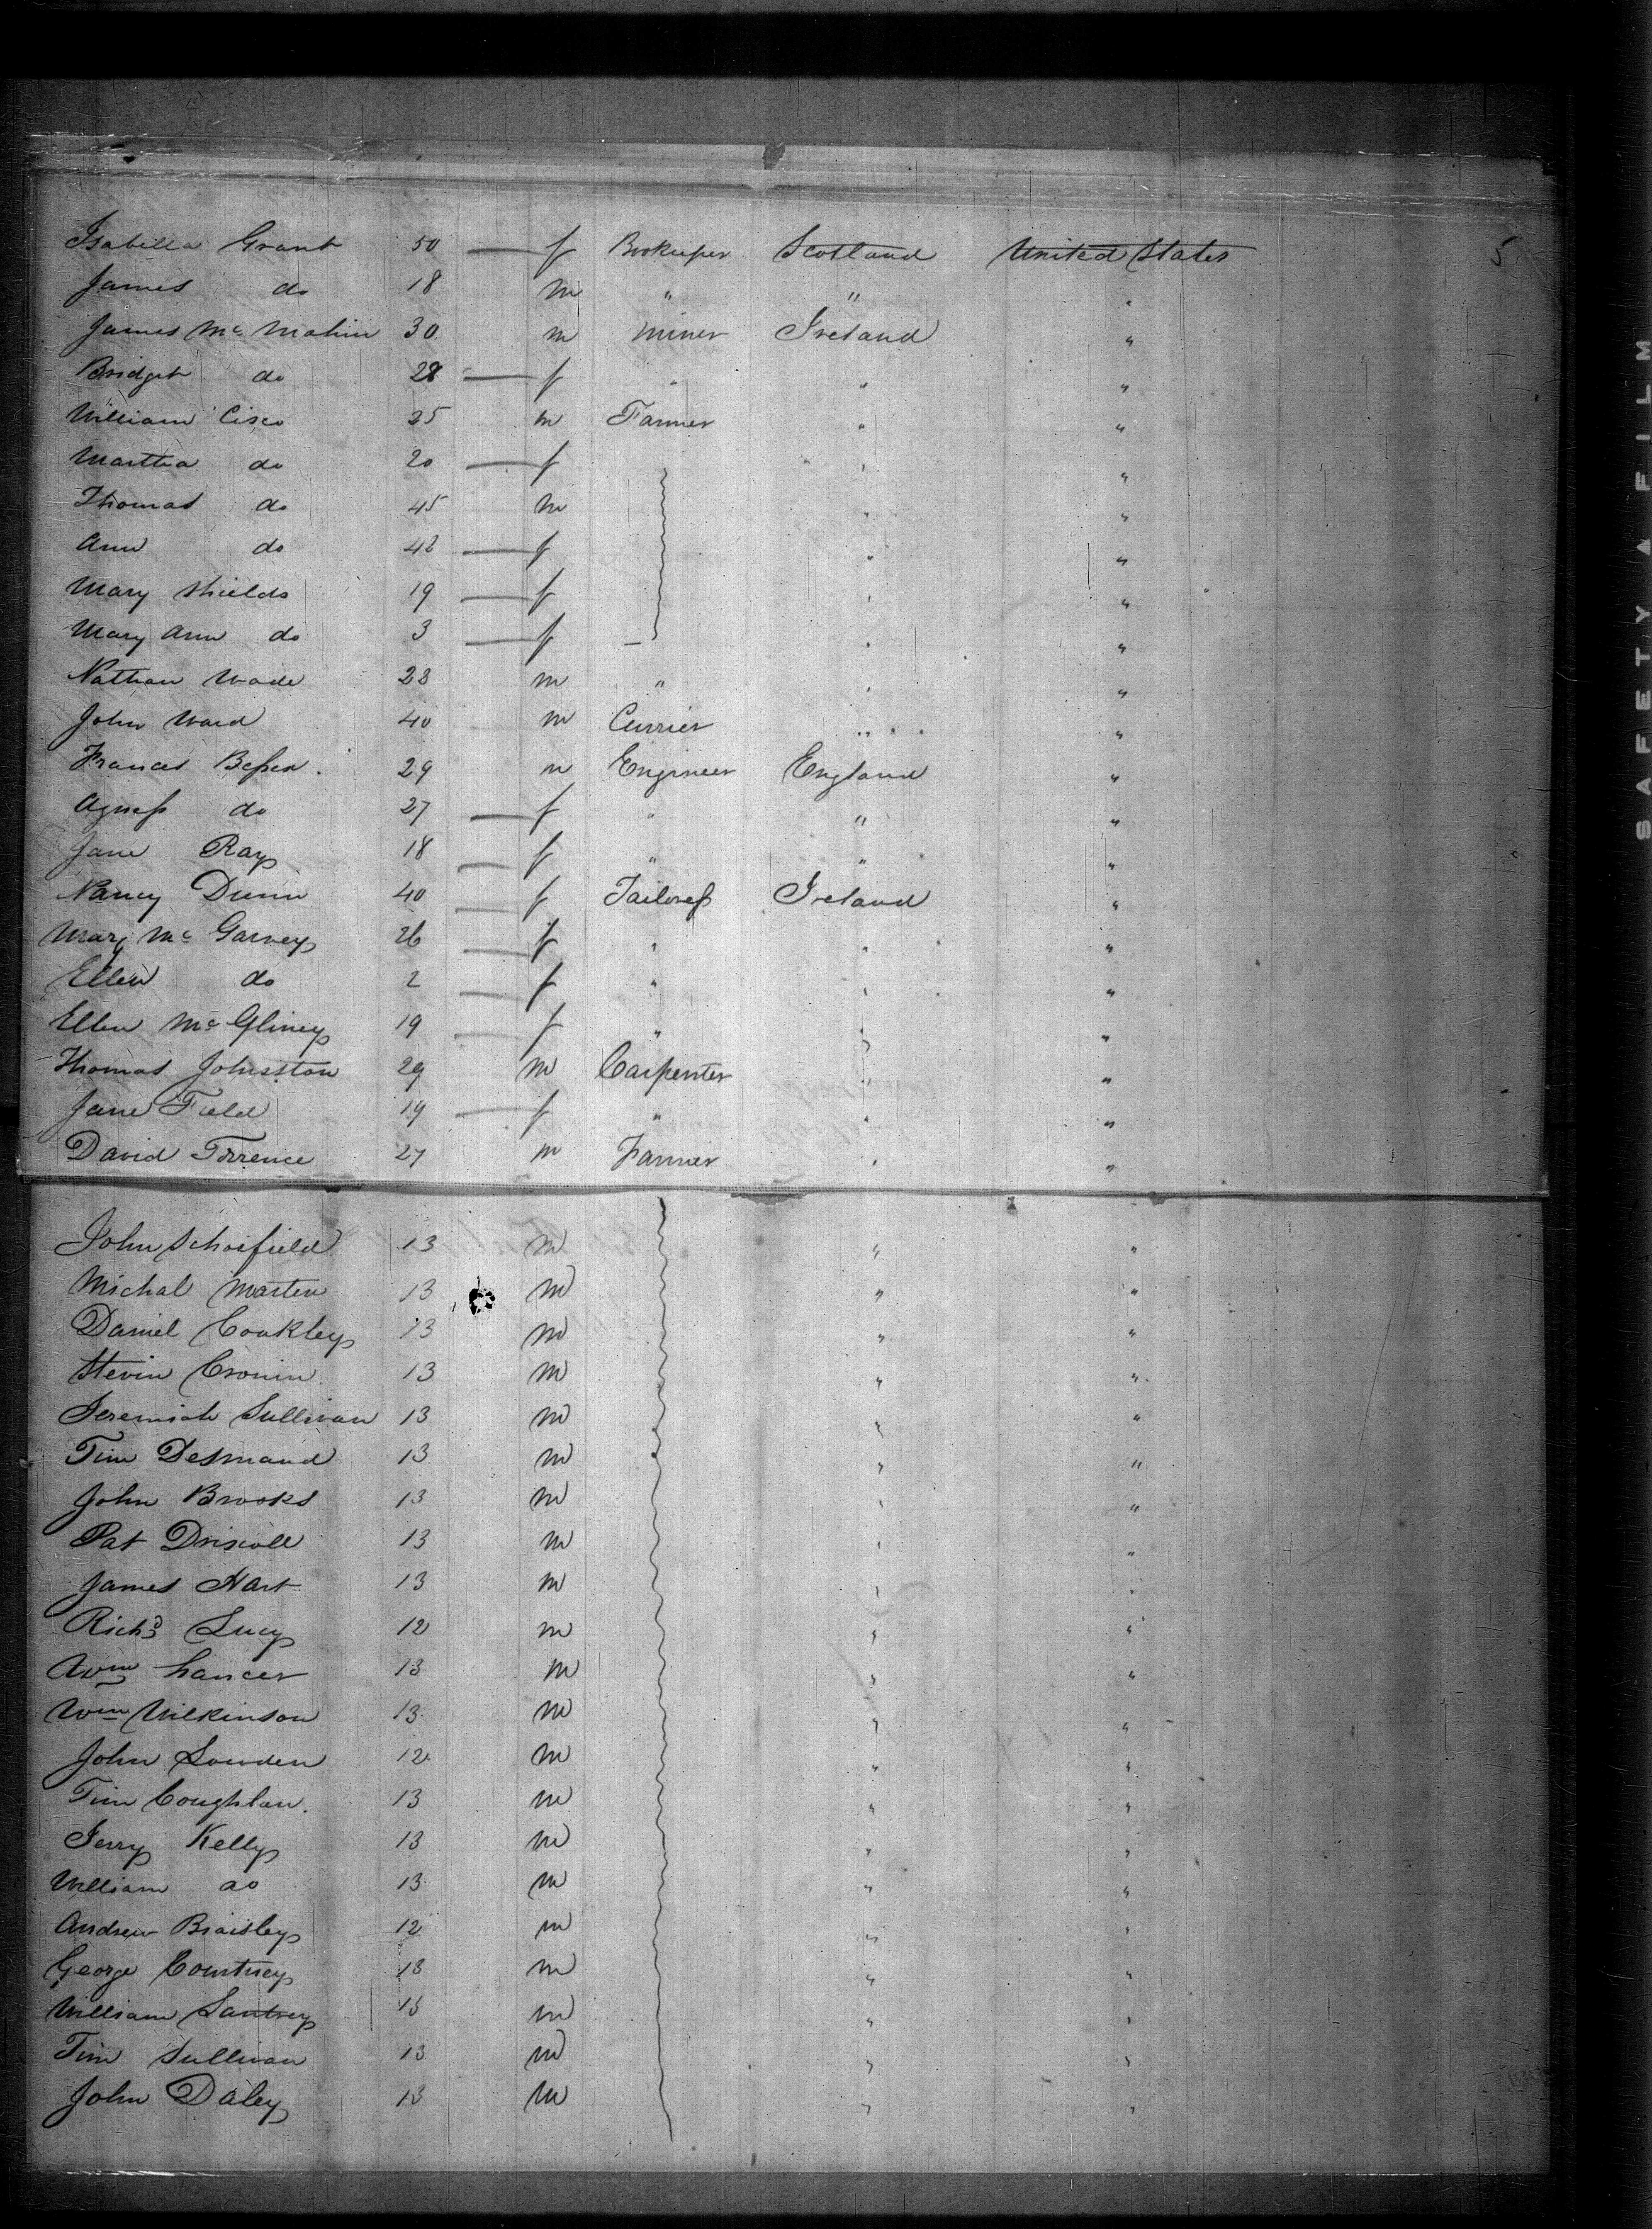 5
Isabella Grant 50 f Bookeeper Scotland United States
James do 18 m " " "
James Mc Mahin 30 m miner Ireland "
Bridget do 28 f " " "
William Cisco 25 m Farmer " "
Martha do 20 f " "
Thomas do 45 m " "
Ann do 42 f " "
Mary Shields 19 f " "
Mary Ann do 3 f " "
Nathan Wade 23 m " " "
John Ward 40 m Currier " "
Frances 29 m Engineer England "
Agness do 27 f " " "
Jane Ray 18 f " " "
Nancy Dunn 40 f Tailoress Ireland "
Mary Mc Garvey 26 f " " "
Ellen do 2 f " " "
Ellen Mc Gliney 19 f " " "
Thomas Johnston 29 m Carpenter " "
Jane Field 19 f " " "
David Torrence 27 m Farmer " "
John Schoifield 13 m " "
Michal Marten 13 m " "
Daniel Coakley 13 m " "
Stevin Cronin 13 m " "
Jeremiah Sullivan 13 m " "
Tim Desmand 13 m " "
John Brooks 13 m " "
Pat Driscoll 13 m " "
James Hart 13 m " "
Richd Lucy 12 m " "
Wm Lancer 13 m " "
Wm Wilkinson 13 m " "
John Sowden 12 m " "
Tim Coughlan 13 m " "
Jerry Kelly 13 m " "
William do 13 m " "
Andrew Braisley 12 m " "
George Courtney 13 m " "
William Santrey 13 m " "
Tim Sullivan 13 m " "
John Daley 13 m " "
SAFETY FILM